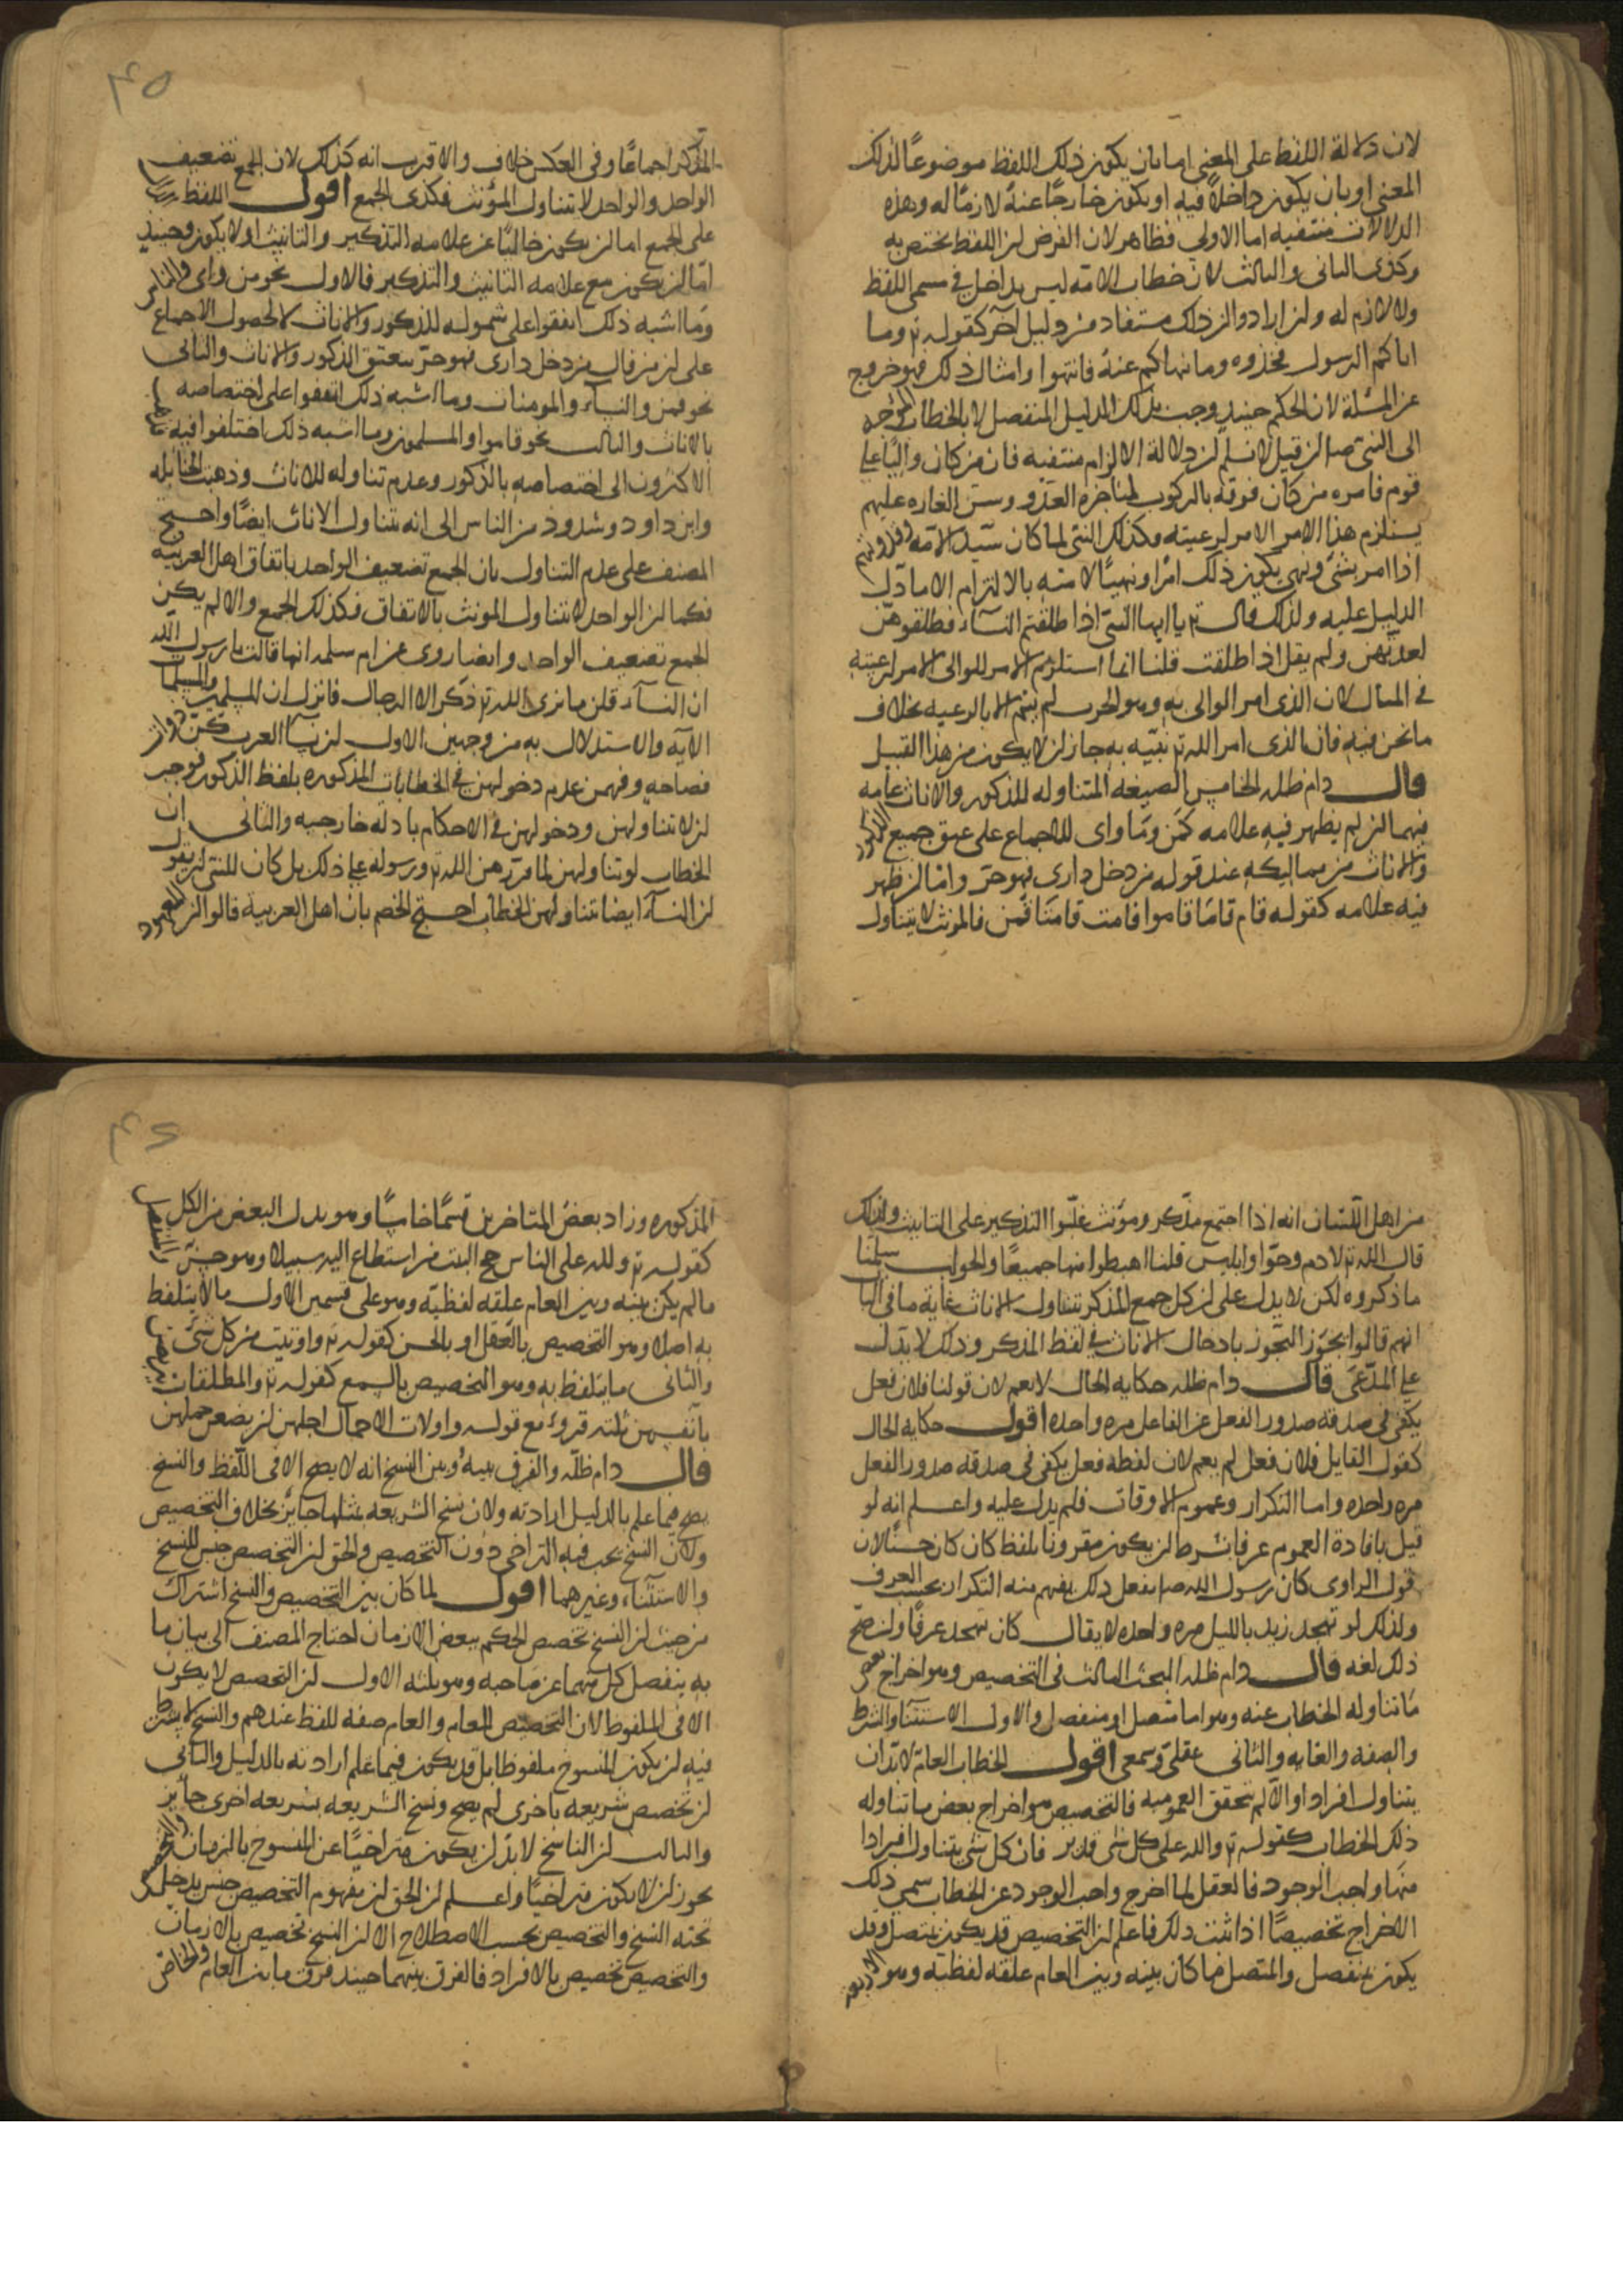 لان دلالة اللفظ على المعنى اما بان يكون ذلك اللفظ موضوعًا لذلك
المعنى او بان يكون داخلاً فيه او يكون خارجًا عنه لازمًا له وهذه
الدلالات منتفيه اما الاولى فظاهر لان الفرض ان اللفظ يختص به
وكذى الثانى والثالث لان خطاب الامه ليس بداخل في مسمى اللفظ
ولا لازم له وان ارادوا ان ذلك مستفاد من دليل آخر كقوله تع وما
اتاكم الرسول فخذوه وما نهاكم عنه فانتهوا وامثال ذلك فهو خروج
عن المسئلة لان الحكم حينيذ وجب بذلك الدليل المنفصل لا بالخطاب الموجه
الى النبى ص فان قيل لا نسلم ان دلالة الالتزام منتفيه فان من كان واليًا على
قوم فامره من كان فوقه بالركوب لمناجزه العدو وسن الغاره عليهم
يستلزم هذا الامر الامر لرعيته وكذلك النبى لما كان سيد الامه وقدوتهم
اذا امر بشئ ونهى يكون ذلك امرًا ونهيًا لامته بالالتزام الا ما دلّ
الدليل عليه ولذلك قال تع يا ايها النبى اذا طلقتم النسآء فطلقوهن
لعدتهن ولم يقل اذا طلقت قلنا انما استلزم الامر للوالى الامر لرعيته
في المثال لان الذى امر الوالى به وهو الحرب لم يتم الا بالرعيه بخلاف
ما نحن فيه فان الذى امر الله تع نبيّه به جاز ان لا يكون من هذا القبيل
قال دام ظله الخامس الصيغه المتناوله للذكور والاناث عامه
فيهما ان لم يظهر فيه علامه كمَن ومَا واى للاجماع على عتق جميع الذكور
والاناث من مماليكه عند قوله من دخل دارى فهو حرّ وامّا ان ظهر
فيه علامه كقوله قام قامَا قاموا قامت قامتا قمن فالمونث لا يتناول
المذكر اجماعًا وفي العكس خلاف والاقرب انه كذلك لان الجمع تضعيف
الواحد والواحد لا تتناول المؤنث فكذى الجمع اقول اللفظ الدال
على الجمع اما ان يكون خاليًا عن علامه التذكير والتانيث اولا يكون وحينيذ
امّا ان يكون مع علامه التانيث والتذكير فالاول نحو من واى والناس
وما اشبه ذلك اتفقوا على شموله للذكور والاناث لحصول الاجماع
على ان من قال من دخل دارى فهو حرّ يتعتق الذكور والاناث والثانى
نحو قمن والنسآء والمومنات وما اشبه ذلك اتفقوا على اختصاصه
بالاناث والثالث نحو قاموا والمسلمون وما اشبه ذلك اختلفوا فيه فذهب
الاكثرون الى اختصاصه بالذكور وعدم تناوله للاناث وذهبت الحنابله
وابن داود وشذوذ من الناس الى انه يتناول الاناث ايضًا واحتج
المصنف على عدم التناول بان الجمع تضعيف الواحد باتفاق اهل العربيّه
فكما ان الواحد لا يتناول المونث بالاتفاق فكذلك الجمع والا لم يكن
الجمع تضعيف الواحد وايضا روى عن ام سلمه انها قالت يا رسول الله
ان النسآء قلن ما نرى الله تع ذكر الا الرجال فانزل ان المسلمين والمسلمات
الايه والاستدلال به من وجهين الاول ان نسآء العرب كنّ ذوات
فصاحه وفهمن عدم دخولهن في الخطابات المذكوره بلفظ الذكور فوجب
ان لا تتناولهن ودخولهن في الاحكام بادله خارجيه والثانى ان
الخطاب لو تناولهن لما قررهن الله تع ورسوله على ذلك بل كان للنبى ان يقول
ان النسآء ايضا يتناولهن الخطاب احتج الخصم بان اهل العربية قالوا ان المعهود
من اهل اللّسان انه اذا اجتمع مذكر ومؤنث غلّبوا التذكير على التانيث ولذلك
قال الله تع لادم وحوّا وابليس قلنا اهبطوا منها جميعًا والجواب سلّمنا
ما ذكروه لكن لا يدل على ان كل جمع المذكر تتناول الاناث غاية ما في الباب
انهم قالوا بجوز التجوز بادخال الاناث في لفظ المذكر وذلك لا يدل
على المدّعى قال دام ظله حكايه الحال لا يعم لان قولنا فلان فعل
يكفى في صدقه صدور الفعل عن الفاعل مره واحده اقول حكايه الحال
كقول القايل فلان فعل لم يعم لان لفظه فعل يكفى في صدقه صدور الفعل
مره واحده واما التكرار وعموم الاوقات فلم يدل عليه واعلم انه لو
قيل بافادة العموم عرفا بشرط ان يكون مقرونا بلفظ كان كان حسنًا لان
قول الراوى كان رسول الله ص يفعل ذلك يفهم منه التكرار بحسب العرف
ولذلك لو تهجد زيد بالليل مره واحده لا يقال كان تهجد عرفًا وان صحّ
ذلك لغه قال دام ظله البحث الثالث في التخصيص وهو اخراج بعض
ما تناوله الخطاب عنه وهو اما متصل او منفصل والاول الاستثنآء والشرط
والصفه والغايه والثانى عقلى وسمعى اقول الخطاب العام لا بدّ ان
يتناول افرادا والّا لم يتحقق العموميه فالتخصيص هو اخراج بعض ما تناوله
ذلك الخطاب كقوله تع والله على كل شى قدير فان كل شى يتناول افرادا
منها واجب الوجود فالعقل لما اخرج واجب الوجود عن الخطاب سمى ذلك
الاخراج تخصيصًا اذا ثبت ذلك فاعلم ان التخصيص قد يكون بمتصل وقد
يكون بمنفصل والمتصل ما كان بينه وبين العام علقه لفظيه وهو الاربعه
المذكوره وزاد بعض المتاخرين قسمًا خامسًا وهو بدل البعض من الكل
كقوله تع ولله على الناس حج البيت من استطاع اليه سبيلا وهو حسن والمنفصل
ما لم يكن بينه وبين العام علقه لفظيّة وهو على قسمين الاول ما لا يتلفظ
به اصلا وهو التخصيص بالعقل او بالحسن كقوله تع واوتيت من كل شئ
والثانى ما يتلفظ به وهو التخصيص بالسمع كقوله تع والمطلقات يتربصن
بانفسهن ثلثه قروء مع قوله واولات الاحمال اجلهن ان يضعن حملهن
قال دام ظلّه والفرق بينه وبين النسخ انه لا يصح الا في اللّفظ والنسخ
يصح فيما علم بالدليل ارادته ولان نسخ الشريعه بمثلها جايز بخلاف التخصيص
ولان النسخ يجب فيه التراخى دون التخصيص والحق ان التخصيص جنس للنسخ
والاستثناء وغيرهما اقول لما كان بين التخصيص والنسخ اشتراك
من حيث ان النسخ تخصيص الحكم ببعض الازمان احتاج المصنف الى بيان ما
به ينفصل كل منهما عن صاحبه وهو ثلثه الاول ان التخصيص لا يكون
الا في الملفوظ لان التخصيص للعام والعام صفه للفظ عندهم والنسخ لا يشترط
فيه ان يكون المنسوخ ملفوظا بل قد يكون فيما علم ارادته بالدليل والثانى
ان تخصيص شريعه باخرى لم يصح ونسخ الشريعه بشريعه اخرى جايز
والثالث ان الناسخ لا بدّ ان يكون متراخيًا عن المنسوخ بالزمان والتخصيص
يجوز ان لا يكون متراخيًا واعلم ان الحق ان مفهوم التخصيص جنس يدخل
تحته النسخ والتخصيص بحسب الاصطلاح الا ان النسخ تخصيص بالازمان
والتخصيص تخصيص بالافراد فالفرق بينهما حينيذ فرق ما بين العام والخاص